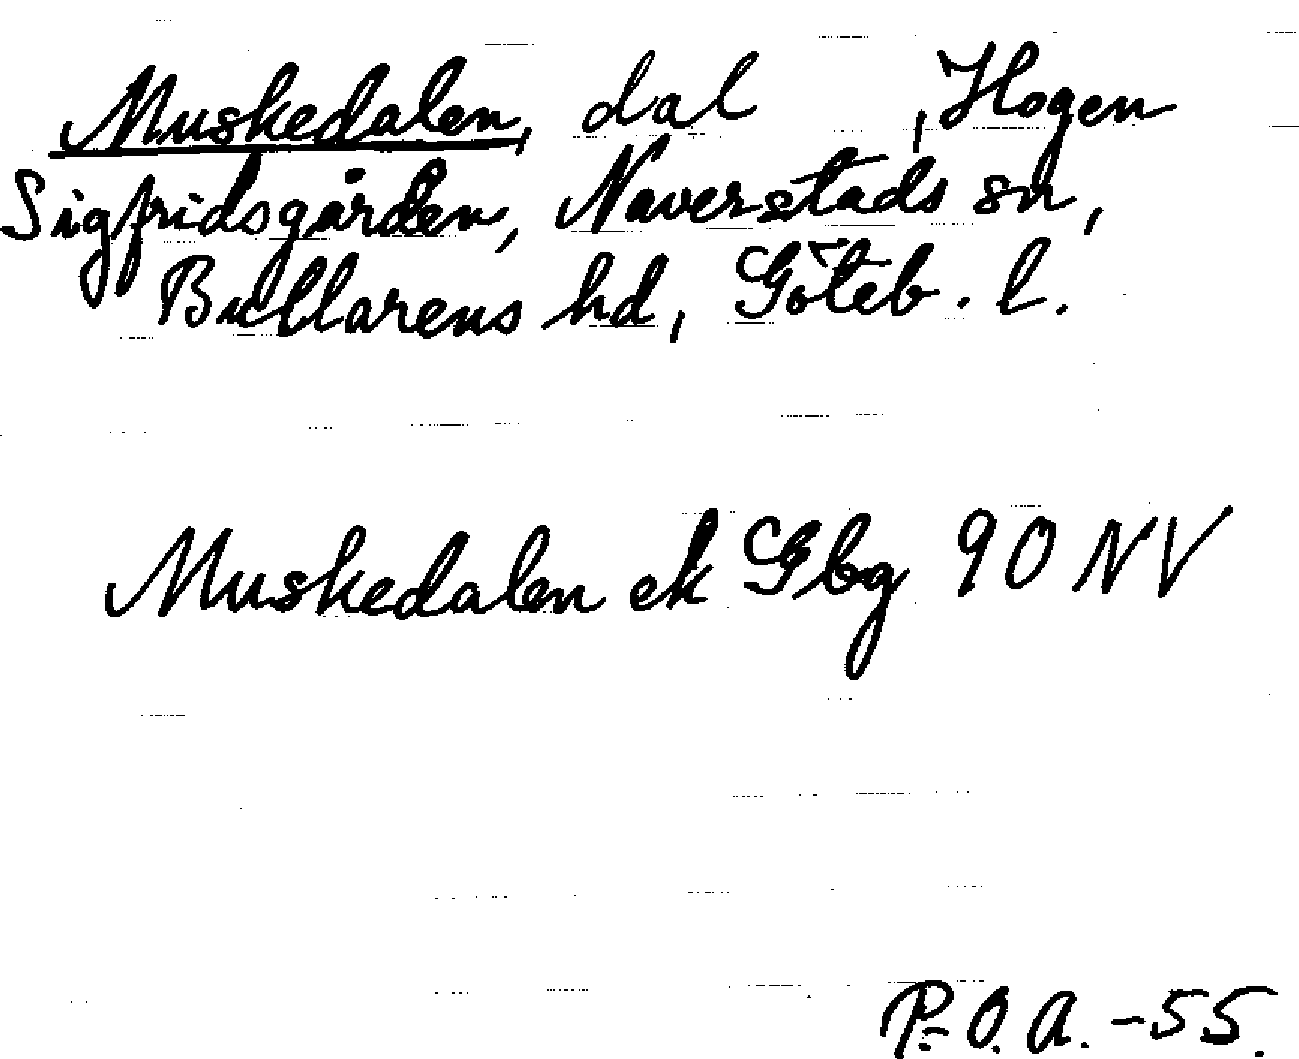 Muskedalen, dal , Hogen
Sigfridsgården, Naverstads sn,
Bullarens hd, Göteb. l.
Muskedalen ek Gbg 90 NV
P.O.A. -55.